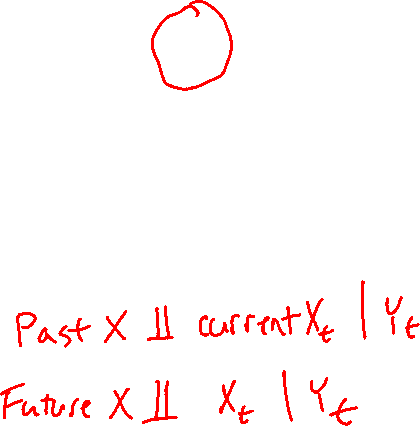 Past X ⫫ current Xt | Yt
Future X ⫫ Xt | Yt